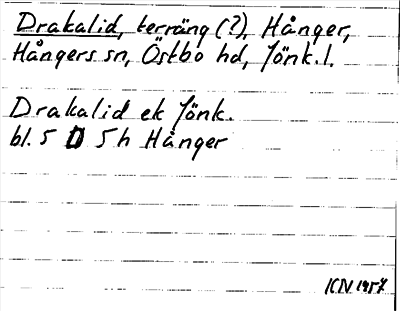 Drakalid, terräng (?), Hånger,
Hångers sn, Östbo hd, Jönk. l.
Drakalid ek Jönk.
bl. 5 D 5h Hånger
ICN 1957